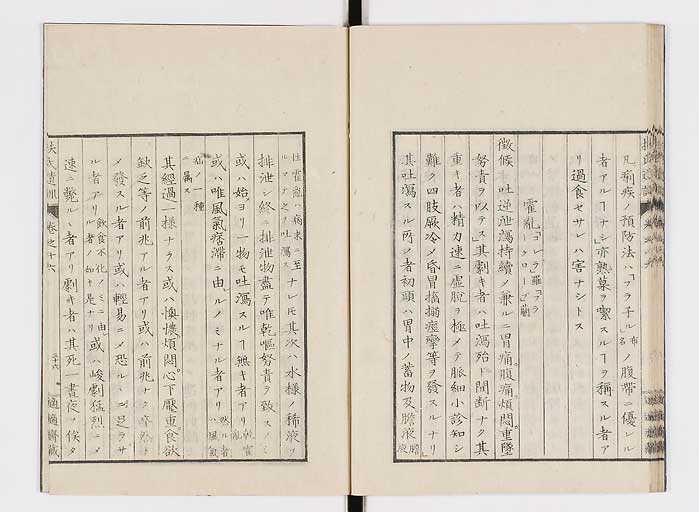 凡痢疾ノ預防法ハ「フラ子ル」布名ノ腹帯ニ優レル
者アルヿナシ亦熟葠ヲ喫スルヿヲ稱スル者ア
リ過食セサレハ害ナシトス
霍亂「コレラ」羅「ブラ
ークローブ」蘭
徴候 吐逆泄瀉持續ノ兼ルニ胃痛腹痛煩悶重墜
努責ヲ以テス其劇キ者ハ吐瀉殆ト間断ナク其
重キ者ハ精力速ニ虚脱ヲ極メテ脈細小診知シ
難ク四肢厥冷メ昏冒搐搦痙攣等ヲ發スルナリ
其吐瀉スル所ノ者初頭ハ胃中ノ蓄物及膽液
性霍亂ハ病末ニ至
ルマテ之ヲ吐瀉ス
ナレ𪜈其次ハ水様ノ稀液ヲ
排泄シ終ニ排泄物盡テ唯乾嘔努責ヲ致スノミ
或ハ始ヨリ一物モ吐瀉スルヿ無キ者アリ
或ハ唯風氣痞滯ニ由ルノミナル者アリ
疝ノ一種
ニ属ス
其經過一様ナラス或ハ懊憹煩悶心下壓重食欲
缺乏等ノ前兆アル者アリ或ハ前兆ナク卒然ト
メ發スル者アリ或ハ輕易ニメ恐ルヽニ足ラサ
ル者アリ
飲食不化ノミニ由
ル者ノ如キ是ナリ
或ハ峻劇猛烈ニメ
速ニ斃ルヽ者アリ劇キ者ハ其死一晝夜ヲ俟タ
扶氏遺訓
巻之十六
三十六
適適齋藏